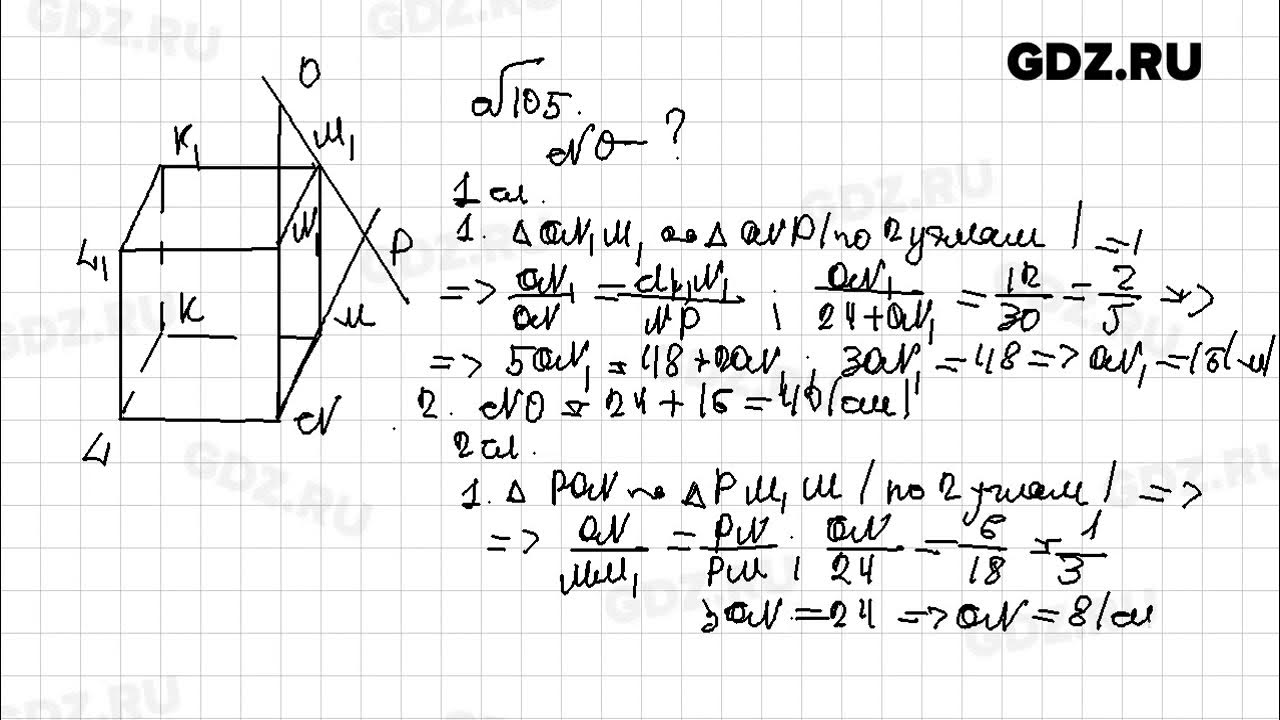 GDZ.RU
№105.
NO - ?
1 сл.
1. Δ ON₁M₁ ∾ Δ ONP (по 2 углам) =>
=> ON₁/ON = M₁N₁/NP ; ON₁/(24+ON₁) = 12/30 = 2/5 =>
=> 5ON₁ = 48 + 2ON₁ ; 3ON₁ = 48 => ON₁ = 16 (см)
2. NO = 24 + 16 = 40 (см)
2 сл.
1. Δ PON ∾ Δ PM₁M (по 2 углам) =>
=> ON/MM₁ = PN/PM ; ON/24 = 6/18 = 1/3
3ON = 24 => ON = 8 (см
O
K₁
M₁
L₁
N₁
P
K
M
L
N